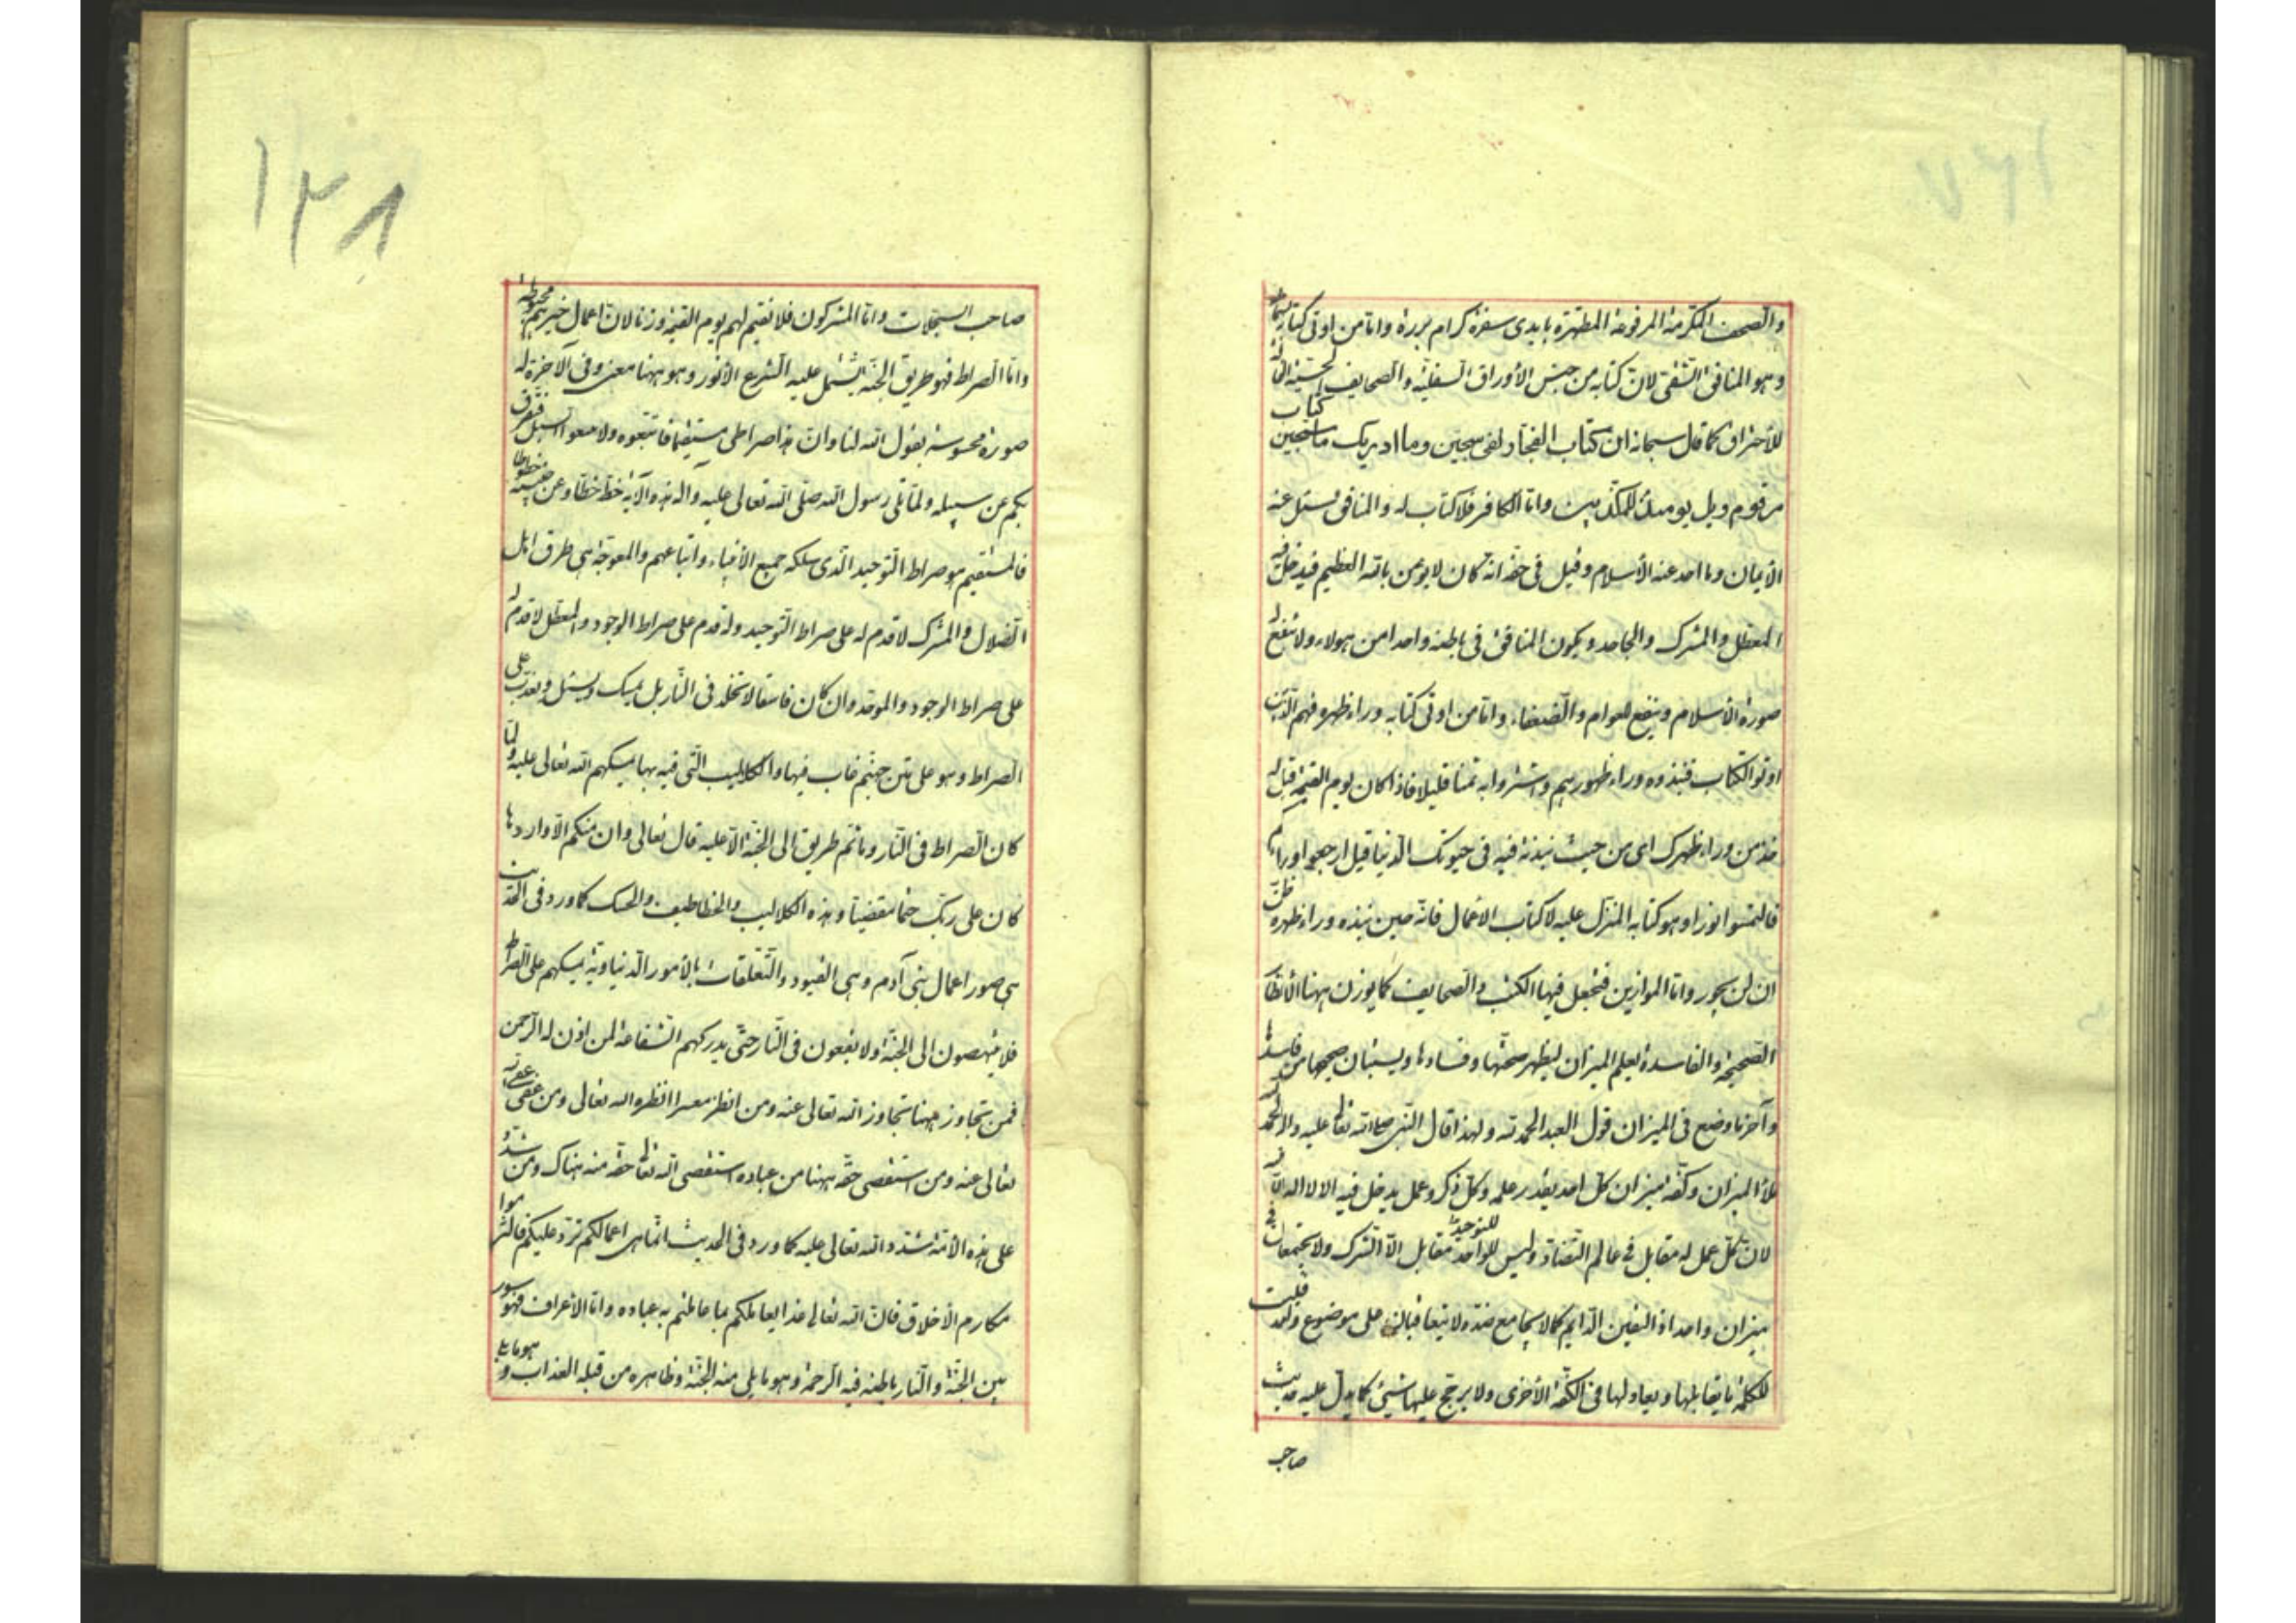 والصحف المكرمة المرفوعة المطهرة بايدى سفرة كرام بررة واما من اوتى كتابه بشماله
وهو المنافق الشقى لان كتابه من جنس الأوراق السفلية والصحايف الحسية القابلة
للأحتراق كما قال سبحانه ان كتاب الفجار لفى سجين وما ادريك ما سجين كتاب
مرقوم ويل يومئذ للمكذبين واما الكافر فلا كتاب له والمنافق سئل عنه
الأيمان وما اخذ عنه الأسلام وقيل فى حقه انه كان لا يؤمن بالله العظيم فيدخل فيه
المعطل والمشرك والجاحد ويكون المنافق فى باطنه واحدا من هولاء ولا ينفع له
صورة الأسلام وينفع للعوام والضعفاء واما من اوتى كتابه وراء ظهره فهم الذين
اوتوا الكتاب فنبذوه وراء ظهورهم واشتروا به ثمنا قليلا فاذا كان يوم القيمة قيل له
خذ من وراء ظهرك اى من حيث نبذته فيه فى حيوتك الدنيا قيل ارجعوا وراءكم
فالتمسوا نورا وهو كتابه المنزل عليه لا كتاب الأعمال فانه حين نبذه وراء ظهره ظن
ان لن يحور واما الموازين فتجعل فيها الكتب والصحايف كما يوزن ههنا الأنظار
الصحيحة والفاسدة بعلم الميزان ليظهر صحتها وفسادها ويستبان صحيحها من فاسدها
وآخر ما وضع فى الميزان قول العبد الحمد لله ولهذا قال النبى صلى الله تعالى عليه واله الحمد لله
تملأ الميزان وكفة ميزان كل احد بقدر علمه وكل ذكر وعمل يدخل فيه الا لا اله الا الله
لان كل عمل له مقابل فى عالم التضاد وليس للتوحيد مقابل الا الشرك ولا يجتمعان فى
ميزان واحد اذ اليقين الدايم كما لا يجامع ضده لا يتعاقبان على موضوع واحد فليست
للكلمة ما يقابلها ويعادلها فى الكفة الأخرى ولا يرجح عليها شيئ كما يدل عليه حديث
صاحب
١٢٨
صاحب السجلات واما المشركون فلا نقيم لهم يوم القيمة وزنا لان اعمال خيرهم محبوطة
واما الصراط فهو طريق الجنة يشتمل عليه الشرع الأنور وهو ههنا معنى وفى الآخرة له
صورة محسوسة يقول الله لنا وان هذا صراطى مستقيما فاتبعوه ولا تتبعوا السبل فتفرق
بكم عن سبيله ولما تلى رسول الله صلى الله تعالى عليه وآله هذه الآية خط خطا وعن جنبيه خطوطا
فالمستقيم هو صراط التوحيد الذى سلكه جميع الأنبياء واتباعهم والمعوجة هى طرق اهل
الضلال والمشرك لا قدم له على صراط التوحيد وله قدم على صراط الوجود والمعطل لا قدم له
على صراط الوجود والموحد وان كان فاسقا لا تخلد فى النار بل يمسك ويسئل ويعذب على
الصراط وهو على متن جهنم غاب فيها والكلاليب التى فيه بها يمسكهم الله تعالى عليه ولما
كان الصراط فى النار وما ثم طريق الى الجنة الا عليه قال تعالى وان منكم الا واردها
كان على ربك حتما مقضيا وهذه الكلاليب والخطاطيف والحسك كما ورد فى الحديث
هى صور اعمال بنى آدم وهى القيود والتعلقات بالأمور الدنياوية يمسكهم على الصراط
فلا ينهضون الى الجنة ولا يقعون فى النار حتى يدركهم الشفاعة لمن اذن له الرحمن
فمن تجاوز ههنا تجاوز الله تعالى عنه ومن انظر معسرا انظره الله تعالى ومن عفى عفى الله
تعالى عنه ومن استقصى حقه ههنا من عباده استقصى الله تعالى حقه منه هناك ومن شدد
على هذه الأمة شدد الله تعالى عليه كما ورد فى الحديث انما هى اعمالكم ترد عليكم فالتزموا
مكارم الأخلاق فان الله تعالى غدا يعاملكم بما عاملتم به عباده واما الأعراف فهو سور
بين الجنة والنار باطنه فيه الرحمة وهو ما يلى منه الجنة وظاهره من قبله العذاب وهو ما يلى